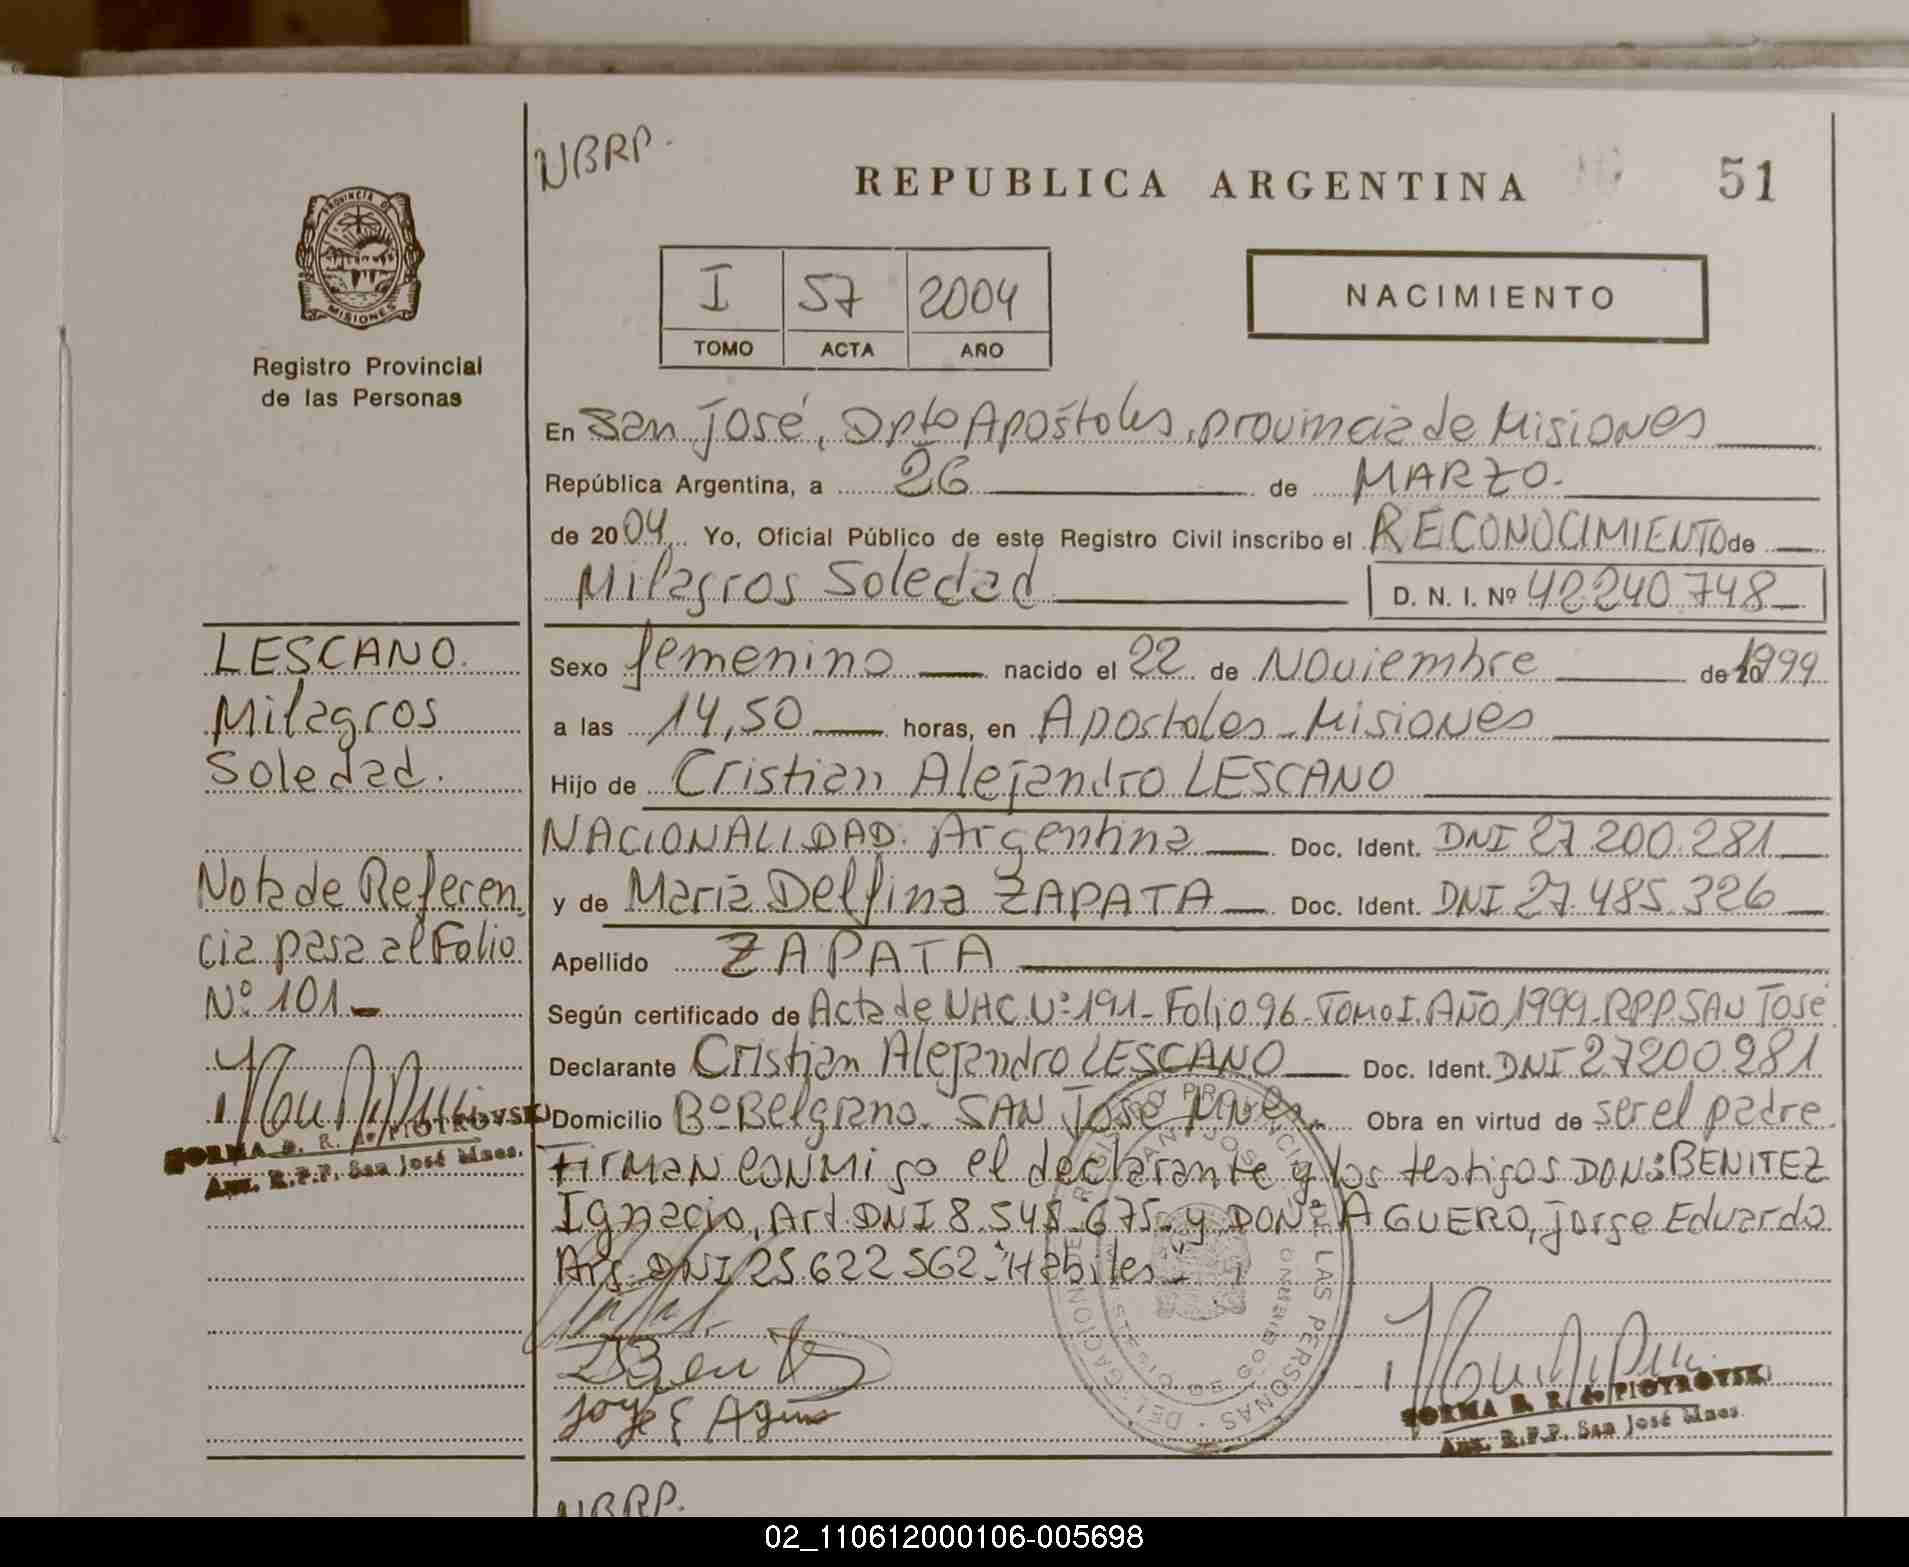 NBRP.
REPUBLICA ARGENTINA
51
PROVINCIA DE
MISIONES
Registro Provincial
de las Personas
I 57 2004
TOMO ACTA AÑO
NACIMIENTO
En San José, Dpto Apóstoles, provincia de Misiones
República Argentina, a 26 de MARZO.
de 2004 Yo, Oficial Público de este Registro Civil inscribo el RECONOCIMIENTO de
Milagros Soledad D. N. I. Nº 42240748
LESCANO.
Milagros
Soledad.
Sexo femenino nacido el 22 de Noviembre de 1999
a las 14,50 horas, en Apostoles - Misiones
Hijo de Cristian Alejandro LESCANO
NACIONALIDAD. Argentina Doc. Ident. DNI 27.200.281
y de María Delfina ZAPATA Doc. Ident. DNI 27.485.326
Apellido ZAPATA
Nota de Referen
cia pasa al Folio
Nº 101
Según certificado de Acta de NAC. Nº 191 - Folio 96 - TOMO I. AÑO 1999 - RPP. SAN José
Declarante Cristian Alejandro LESCANO Doc. Ident. DNI 27200.281
Domicilio Bº Belgrano. SAN José Mnes. Obra en virtud de ser el padre.
FirMAN CONMigo el declarante y los testigos DON: BENITEZ
Ignacio, Arg. DNI 8.548.675 - y DON: AGUERO, Jorge Eduardo
Arg. DNI 25.622.562 - "Hábiles"
NORMA B. R. de PIOTROVSKI
Aux. R.P.P. San José Mnes.
Jorge E Aguero
NORMA B. R. de PIOTROVSKI
Aux. R.P.P. San José Mnes.
NBRP.
02_110612000106-005698